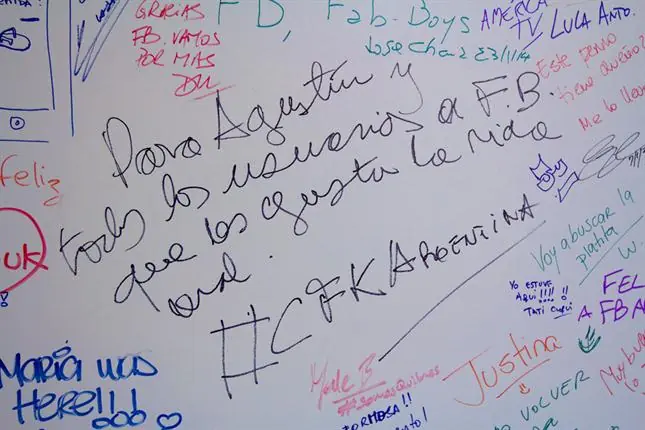 GRACIAS
FB. VAMOS
POR MAS
FD, Fab-Boys
Jose Chaz 23/11/14
AMÉRICA
TV LULA ANTO.
Este
tiene dueño?
Me lo
Para Agustín y
todos los usuarios a F.B.
que les gusta la vida
real.
#CFKARGENTINA
feliz
uk
Voy a buscar la
platita
W.
YO ESTUVE
AQUI!!!! !!
TATI
FEL
A FB A
MARIA WAS
HERE!!!
#somosQuilmes
FORMOSA!!
Justina
VOLVER